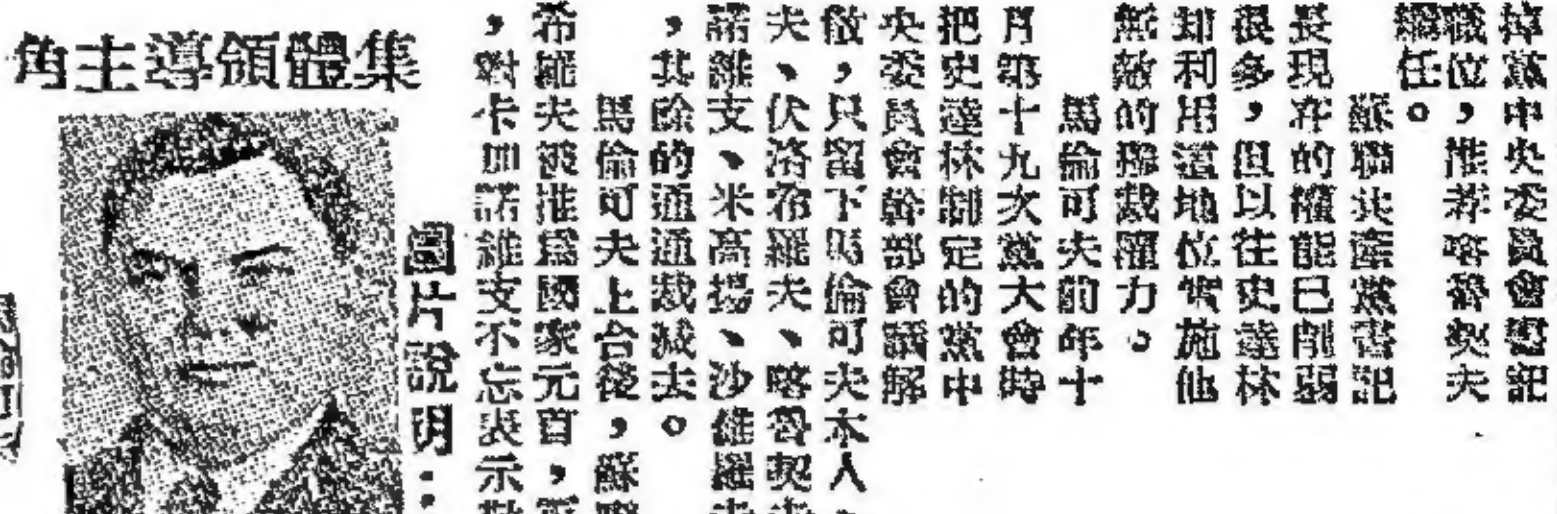 掉黨中央委員會書記
職位，推荐喀魯契夫
繼任。
蘇聯共產黨書記
長現在的權能已削弱
很多，但以往史達林
却利用這地位實施他
無敵的獨裁權力。
馬倫可夫前年十
月第十九次黨大會時
把史達林制定的黨中
央委員會幹部會議解
散，只留下馬倫可夫本人、
夫、伏洛希羅夫、喀魯契夫
諾維支、米高揚、沙維羅夫
，其餘的通通裁减去。
馬倫可夫上台後，蘇聯
希羅夫被推爲國家元首，
，對卡加諾維支不忘表示
圖片說明：
集體領導主角